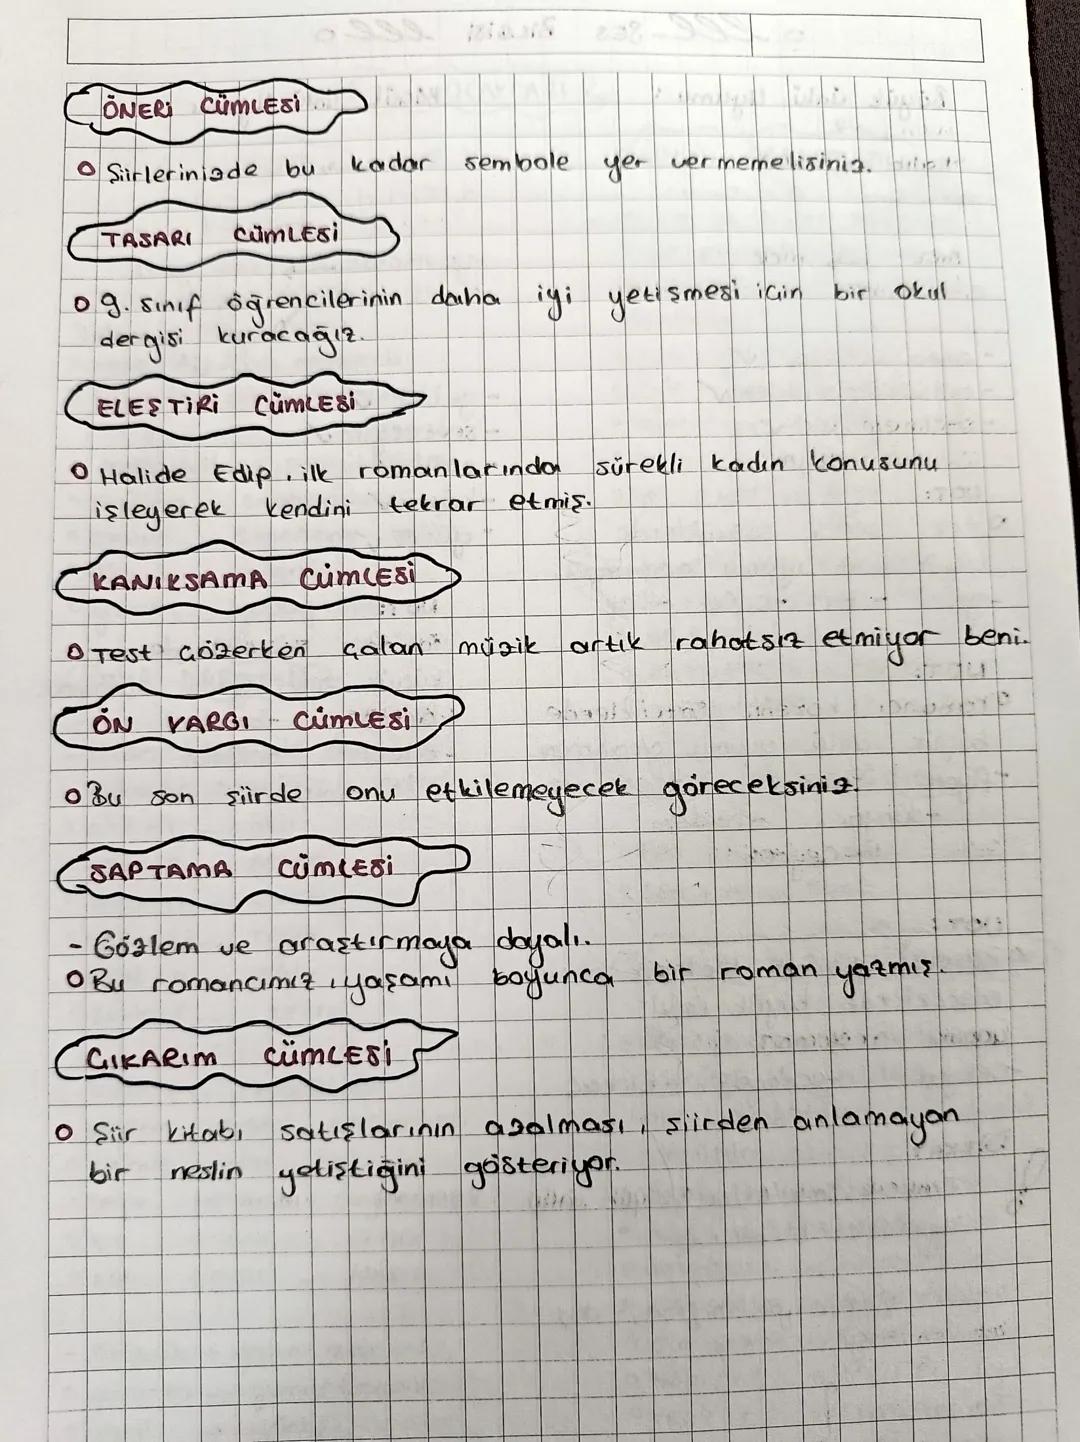 ÖNERİ CÜMLESİ
Şiirlerinizde bu kadar sembole yer vermemelisiniz.
TASARI CÜMLESİ
9. sınıf öğrencilerinin daha iyi yetişmesi için bir okul
dergisi kuracağız.
ELEŞTİRİ CÜMLESİ
Halide Edip, ilk romanlarında sürekli kadın konusunu
işleyerek kendini tekrar etmiş.
KANIKSAMA CÜMLESİ
Test çözerken çalan müzik artık rahatsız etmiyor beni.
ÖN YARGI CÜMLESİ
Bu son şiirde onu etkilemeyecek göreceksiniz.
SAPTAMA CÜMLESİ
- Gözlem ve araştırmaya dayalı.
Bu romancımız, yaşamı boyunca bir roman yazmış.
ÇIKARIM CÜMLESİ
Şiir kitabı satışlarının azalması, şiirden anlamayan
bir neslin yetiştiğini gösteriyor.